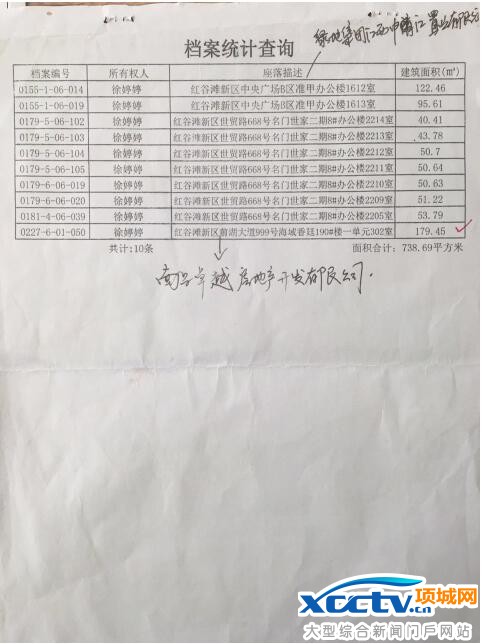 绿地集团江西申浦江置业有限公司
档案统计查询
档案编号 所有权人 座落描述 建筑面积(㎡)
0155-1-06-014 徐婷婷 红谷滩新区中央广场B区准甲办公楼1612室 122.46
0155-1-06-019 徐婷婷 红谷滩新区中央广场B区准甲办公楼1613室 95.61
0179-5-06-102 徐婷婷 红谷滩新区世贸路668号名门世家二期8#办公楼2214室 40.41
0179-5-06-103 徐婷婷 红谷滩新区世贸路668号名门世家二期8#办公楼2213室 43.78
0179-5-06-104 徐婷婷 红谷滩新区世贸路668号名门世家二期8#办公楼2212室 50.7
0179-5-06-105 徐婷婷 红谷滩新区世贸路668号名门世家二期8#办公楼2211室 50.64
0179-6-06-019 徐婷婷 红谷滩新区世贸路668号名门世家二期8#办公楼2210室 50.63
0179-6-06-020 徐婷婷 红谷滩新区世贸路668号名门世家二期8#办公楼2209室 51.22
0181-4-06-039 徐婷婷 红谷滩新区世贸路668号名门世家二期8#办公楼2205室 53.79
0227-6-01-050 徐婷婷 红谷滩新区前湖大道999号海域香廷190#楼一单元302室 179.45
共计:10条 面积合计: 738.69平方米
南昌卓越房地产开发有限公司.
xcctv.cn 项城网
大型综合新闻门戶网站